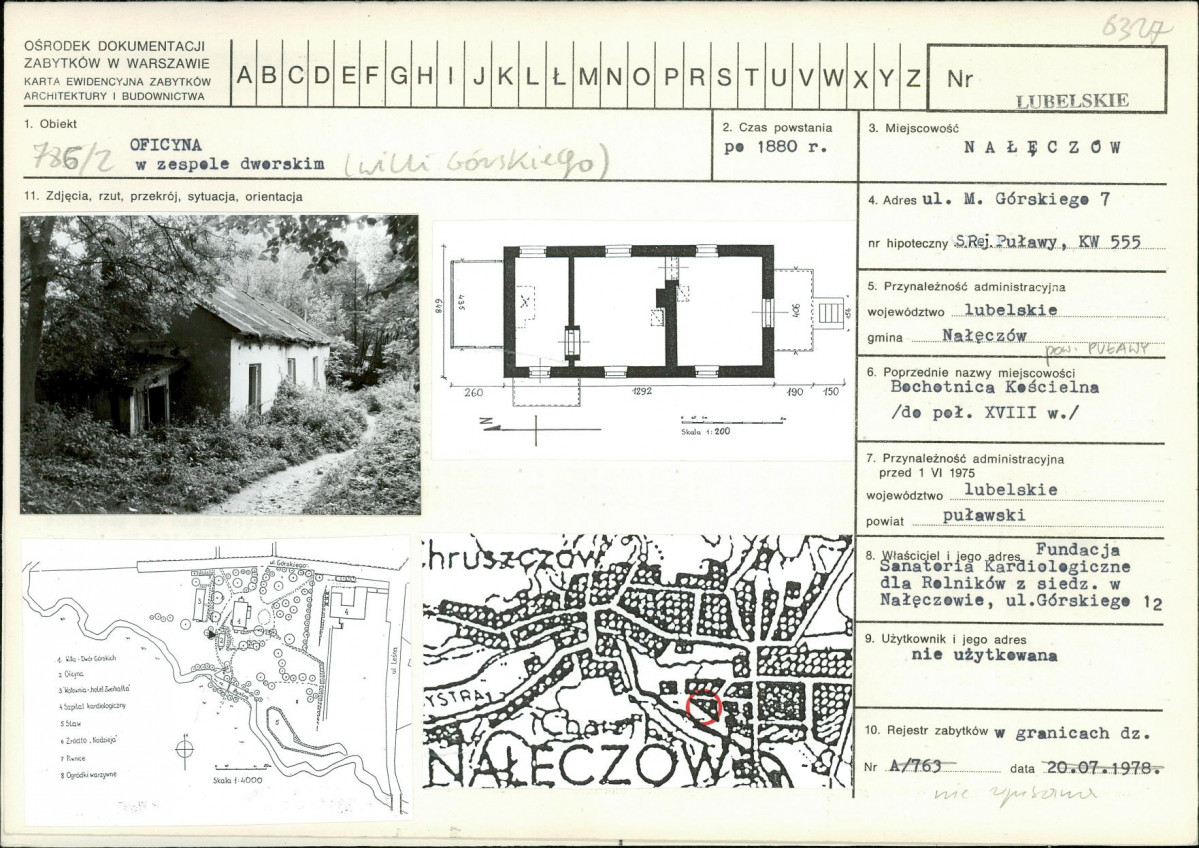 6327
OŚRODEK DOKUMENTACJI
ZABYTKÓW W WARSZAWIE
KARTA EWIDENCYJNA ZABYTKÓW
ARCHITEKTURY I BUDOWNICTWA
A B C D E F G H I J K L Ł M N O P R S T U V W X Y Z
Nr
LUBELSKIE
1. Obiekt
786/2 OFICYNA
w zespole dworskim (willi Górskiego)
2. Czas powstania
po 1880 r.
3. Miejscowość
NAŁĘCZÓW
11. Zdjęcia, rzut, przekrój, sytuacja, orientacja
4. Adres ul. M. Górskiego 7
nr hipoteczny S.Rej. Puławy, KW 555
5. Przynależność administracyjna
województwo lubelskie
gmina Nałęczów
pow. PUŁAWY
6. Poprzednie nazwy miejscowości
Bochotnica Kościelna
/do poł. XVIII w./
7. Przynależność administracyjna
przed 1 VI 1975
województwo lubelskie
powiat puławski
8. Właściciel i jego adres Fundacja
Sanatoria Kardiologiczne
dla Rolników z siedz. w
Nałęczowie, ul.Górskiego 12
9. Użytkownik i jego adres
nie użytkowana
10. Rejestr zabytków w granicach dz.
Nr A/763 data 20.07.1978.
nie wpisana
648
435
406
260
1292
190
150
N
Skala 1:200
ul. Górskiego
ul. Leśna
1 Willa - Dwór Górskich
2 Oficyna
4 Szpital kardiologiczny
5 Staw
6 Źródło "Nadzieja"
7 Piwnice
8 Ogródki warzywne
Skala 1:4000
hruszczów
YSTRA
NAŁĘCZÓW